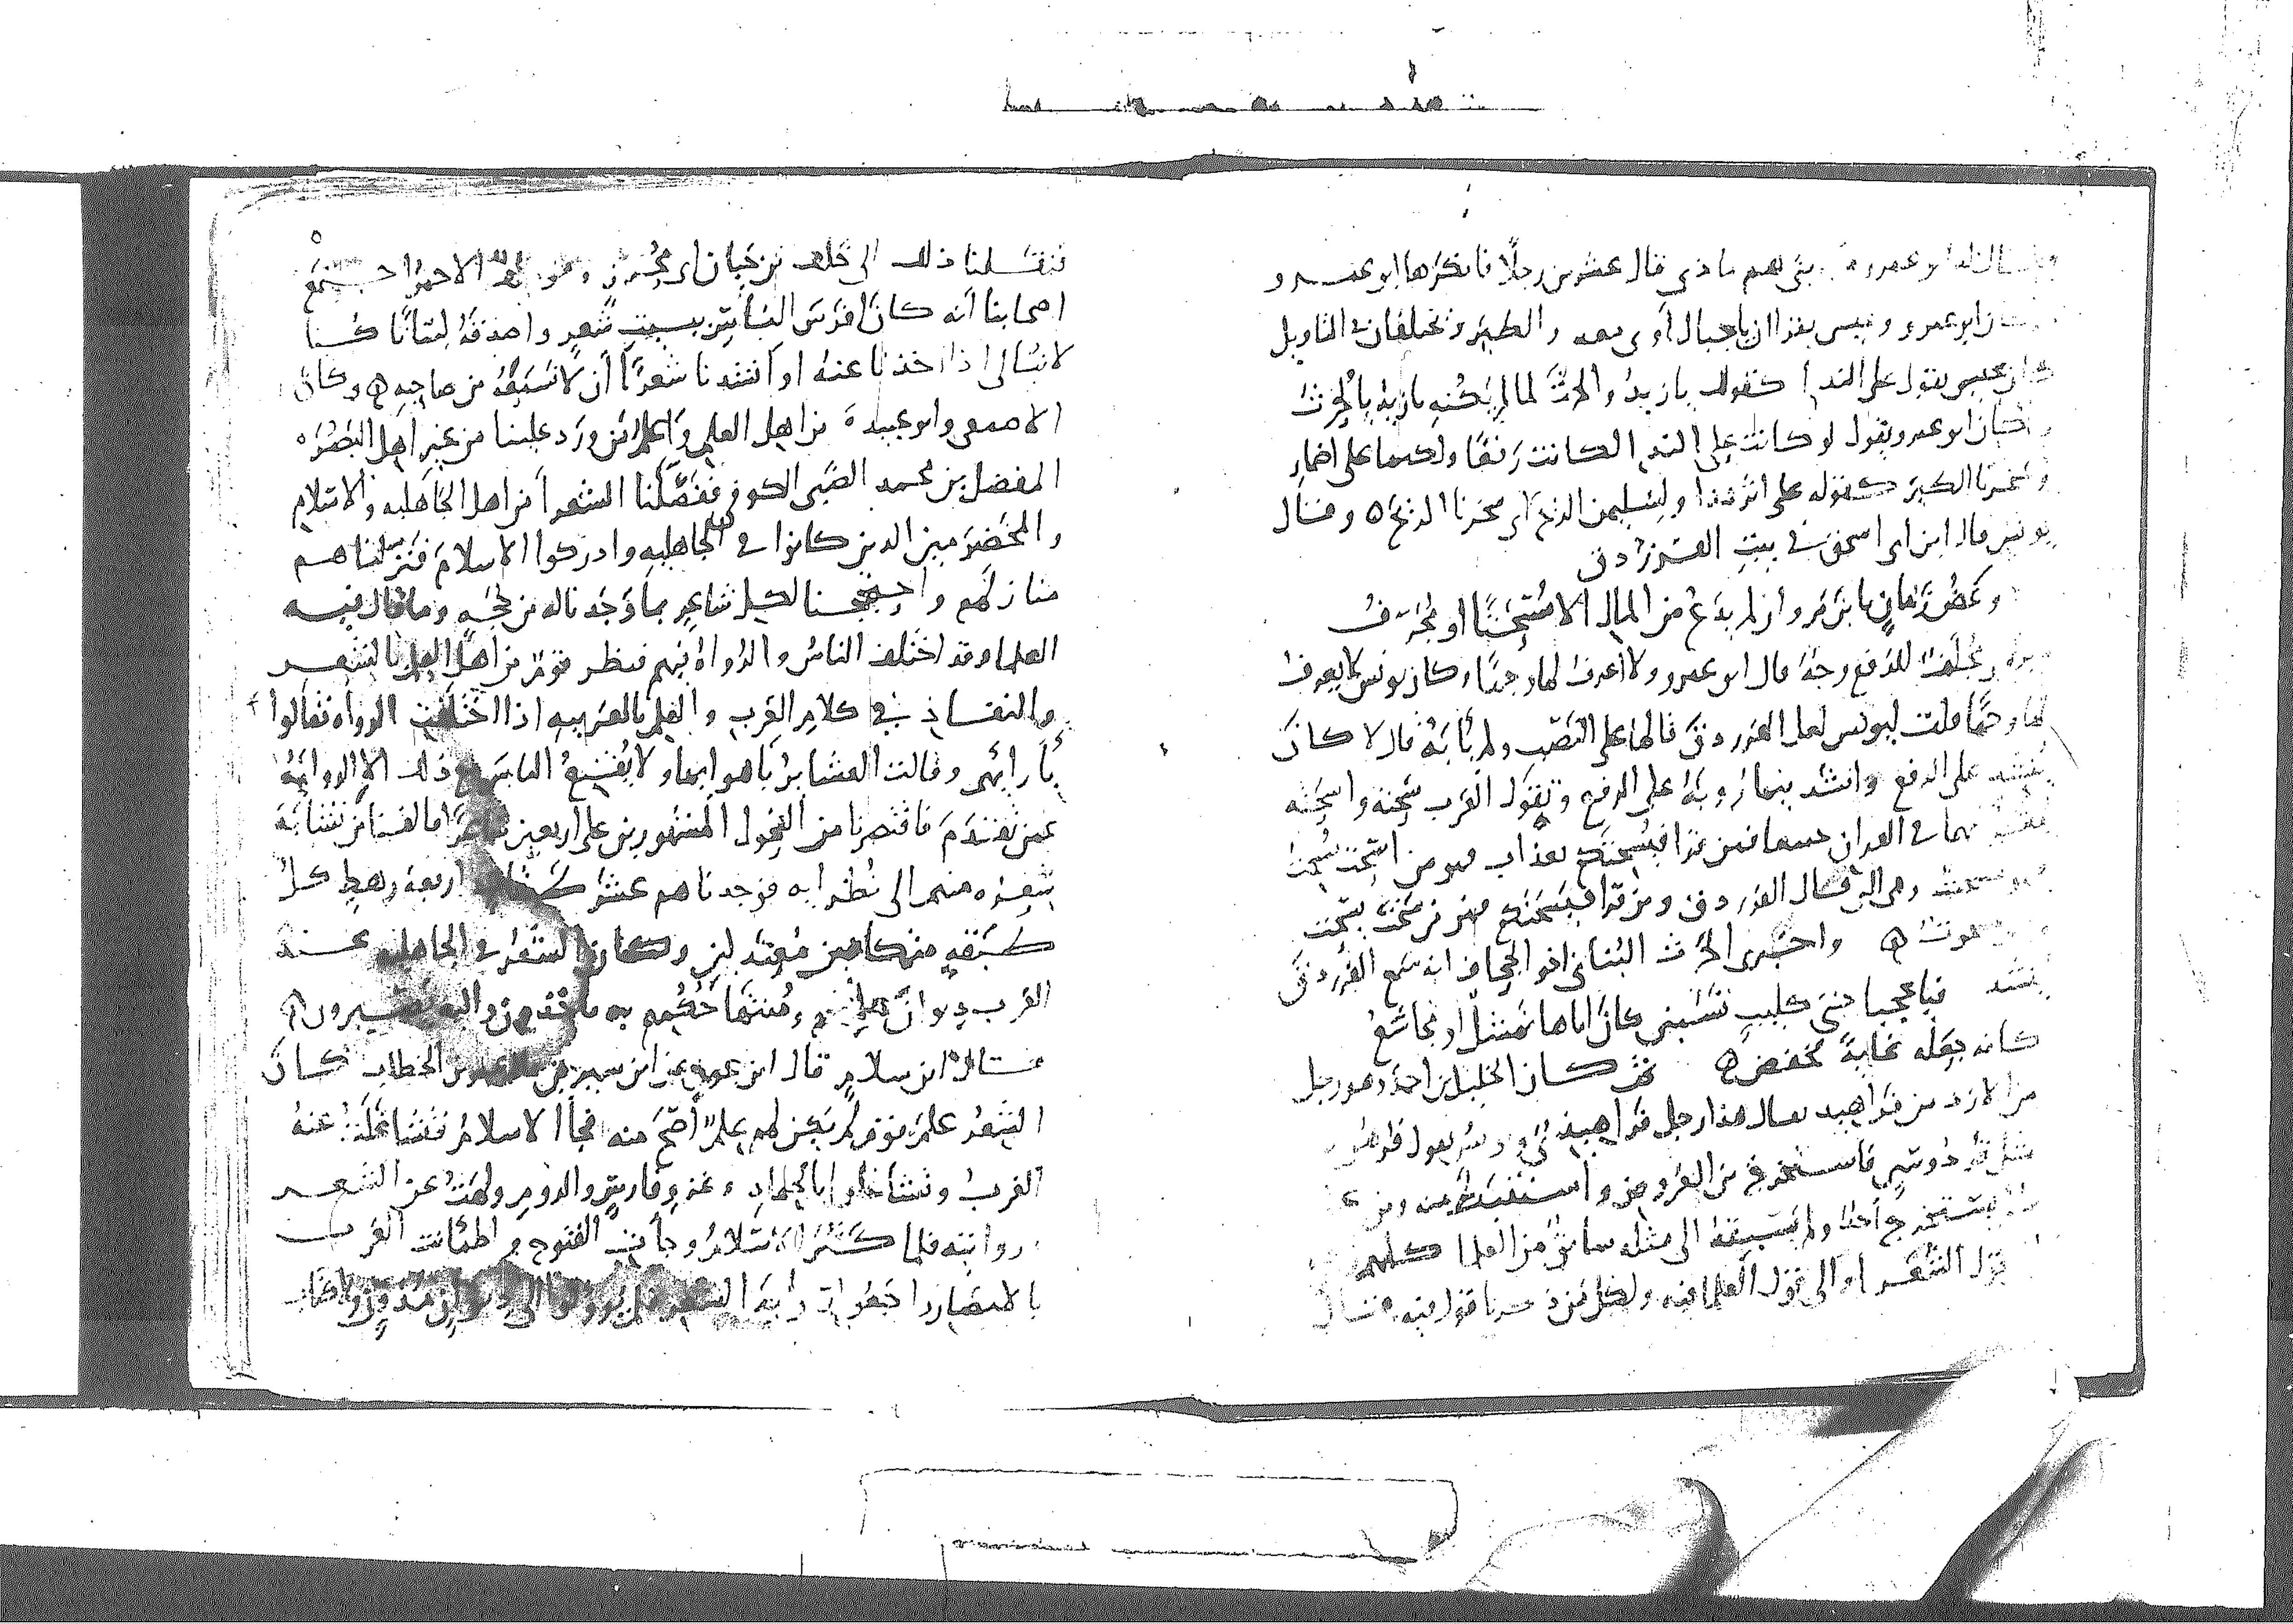 فقال له ابو عمرو بقى لهم ماذى قال عشرين رجلا فانكرها ابو عمرو
كان ابو عمرو وعيسى يقران ياجبال أوبى معه والطير ويختلفان فى التاويل
كان عيسى يقول على الندا كقولك يا زيد والحرث لما لم يمكنه يا زيد يا الحرث
وكان ابو عمرو يقول لو كانت على الندا لكانت رفعا ولكنها على اضمار
وسخرنا الطير كقوله على اثر هذا ولسليمن الريح اى سخرنا الريح ه وقال
يونس قال ابن ابى اسحق فى بيت الفرزدق
وعض زمان يا بن مروان لم يدع من المال الا مسحتا او مجرف
ومجلف للرفع وجه قال ابو عمرو ولا اعرف لها وجها وكان يونس لا يعرف
لها وجها قلت ليونس لعل الفرزدق قالها على النصب ولم يأبه قال لا كان
ينشد على الرفع وانشد فيها رؤبة على الرفع وتقول العرب سحته واسحته
يقرا بهما فى القران جميعا فمن قرا فيسحتكم بعذاب فهو من اسحت يسحت
فهو مسحت وهى التى قال الفرزدق ومن قرا فيسحتكم فهو من سحت يسحت
مسحوت ه واخبرنى الحرث البنانى اخو الجحاف انه سمع الفرزدق
ينشد فيا عجبا حتى كليب تسبنى كان اباها نهشل او مجاشع
كانه جعله غاية فخفض ه ثم كان الخليل بن احمد وهو رجل
من الازد من فراهيد يقال هذا رجل فراهيدى ويونس يقول فرهودى
مثل قردوسى فاستخرج من العروض واستنبط منه ومن
يستخرج أحد ولم يسبقه الى مثله سابق من العلما كلهم
قول الشعر او الى قول العلما فيه ولكل من ذكرنا قول فيه فقال
فنقلنا ذلك الى خلف بن حيان ابى محرز وهو خلف الاحمر اجتمع
اصحابنا أنه كان افرس الناس ببيت شعر واصدقه لسانا كنا
لا نبالى اذا اخذنا عنه او أنشدنا شعرا أن لا نسمعه من صاحبه ه وكان
الاصمعى وابو عبيدة من اهل العلم واعلم من ورد علينا من غير اهل البصره
المفضل بن محمد الضبى الكوفى ففصلنا الشعرا من اهل الجاهليه والاسلام
والمخضرمين الذين كانوا فى الجاهليه وادركوا الاسلام فنزلناهم
منازلهم واحتججنا لكل شاعر بما وجدنا له من حجه وما قال فيه
العلما وقد اختلف الناس والرواة فيهم فنظر قوم من اهل العلم بالشعر
والنفاذ فى كلام العرب والعلم بالعربيه اذا اختلفت الرواه فقالوا
بأرائهم وقالت العشاير بأهوايها ولا يقنع الناس مع ذلك الا الرواية
عمن تقدم فاقتصرنا من الفحول المشهورين على اربعين شاعرا فالفنا من تشابه
شعره منهم الى نظرايه فوجدناهم عشر طبقات اربعة رهط كل
طبقه متكافين معتدلين وكان الشعر فى الجاهليه عند
العرب ديوان علمهم ومنتها حكمهم به ياخذون واليه يصيرون ه
قال ابن سلام قال ابن عون عن ابن سيرين قال عمر بن الخطاب كان
الشعر علم قوم لم يكن لهم علم أصح منه فجأ الاسلام فتشاغلت عنه
العرب وتشاغلوا بالجهاد وغزو فارس والروم ولهت عن الشعر
وروايته فلما كثر الاسلام وجأت الفتوح واطمأنت العرب
بالامصار راجعوا رواية الشعر فلم يؤولوا الى ديوان مدون ولا كتاب